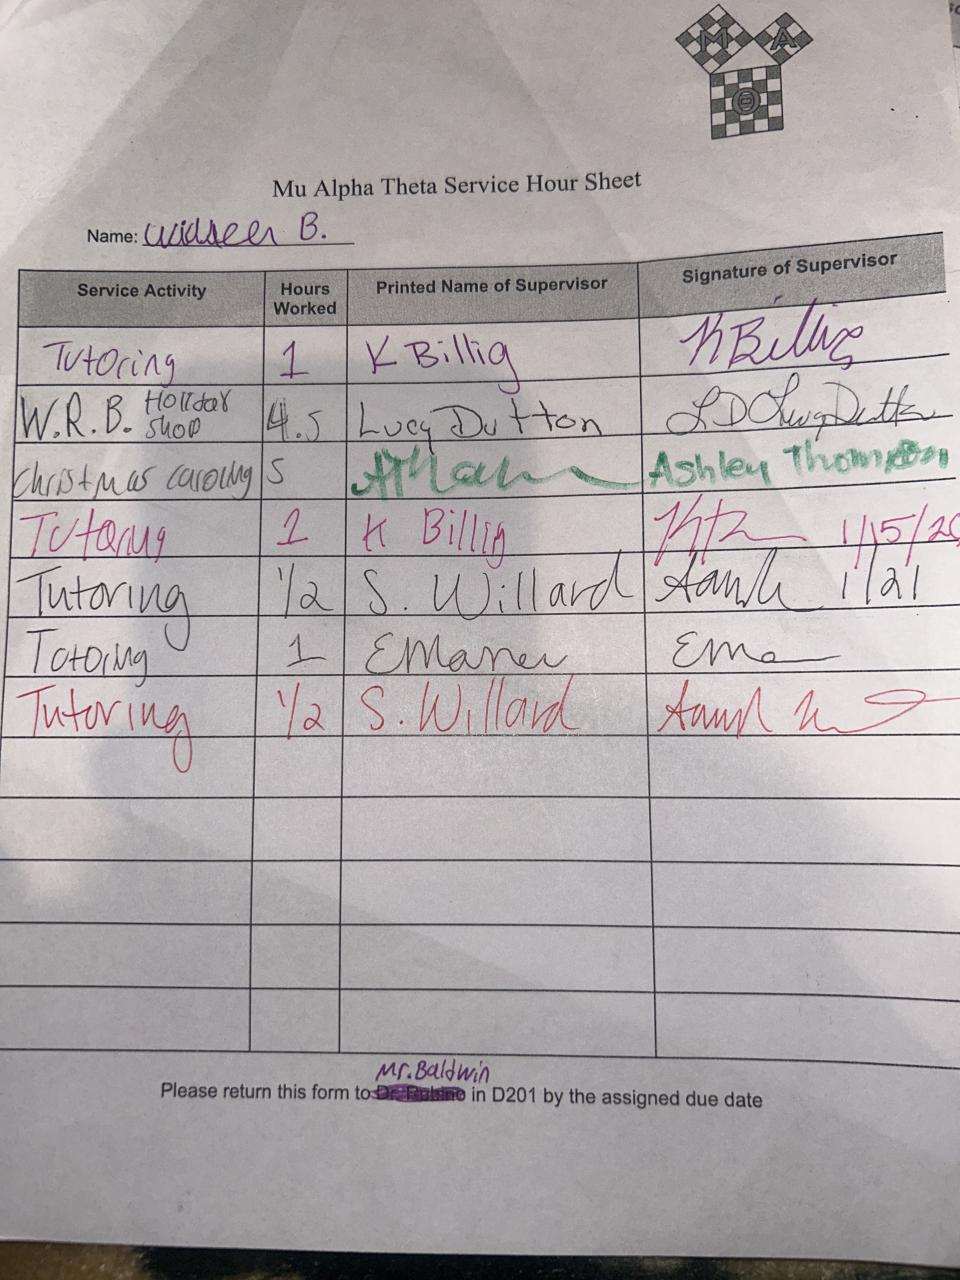 M A
Θ
Mu Alpha Theta Service Hour Sheet
Name: Widseer B.
Service Activity Hours Worked Printed Name of Supervisor Signature of Supervisor
Tutoring 1 K Billig K Billig
W.R.B. Holiday Shop 4.5 Lucy Dutton LD Lucy Dutton
Christmas caroling 5 Ashley Thompson
Tutoring 1 K Billig 1/15/20
Tutoring 1/2 S. Willard 1/21
Totoring 1 EManer Ema
Tutoring 1/2 S. Willard
Mr. Baldwin
Please return this form to Dr. Rubino in D201 by the assigned due date